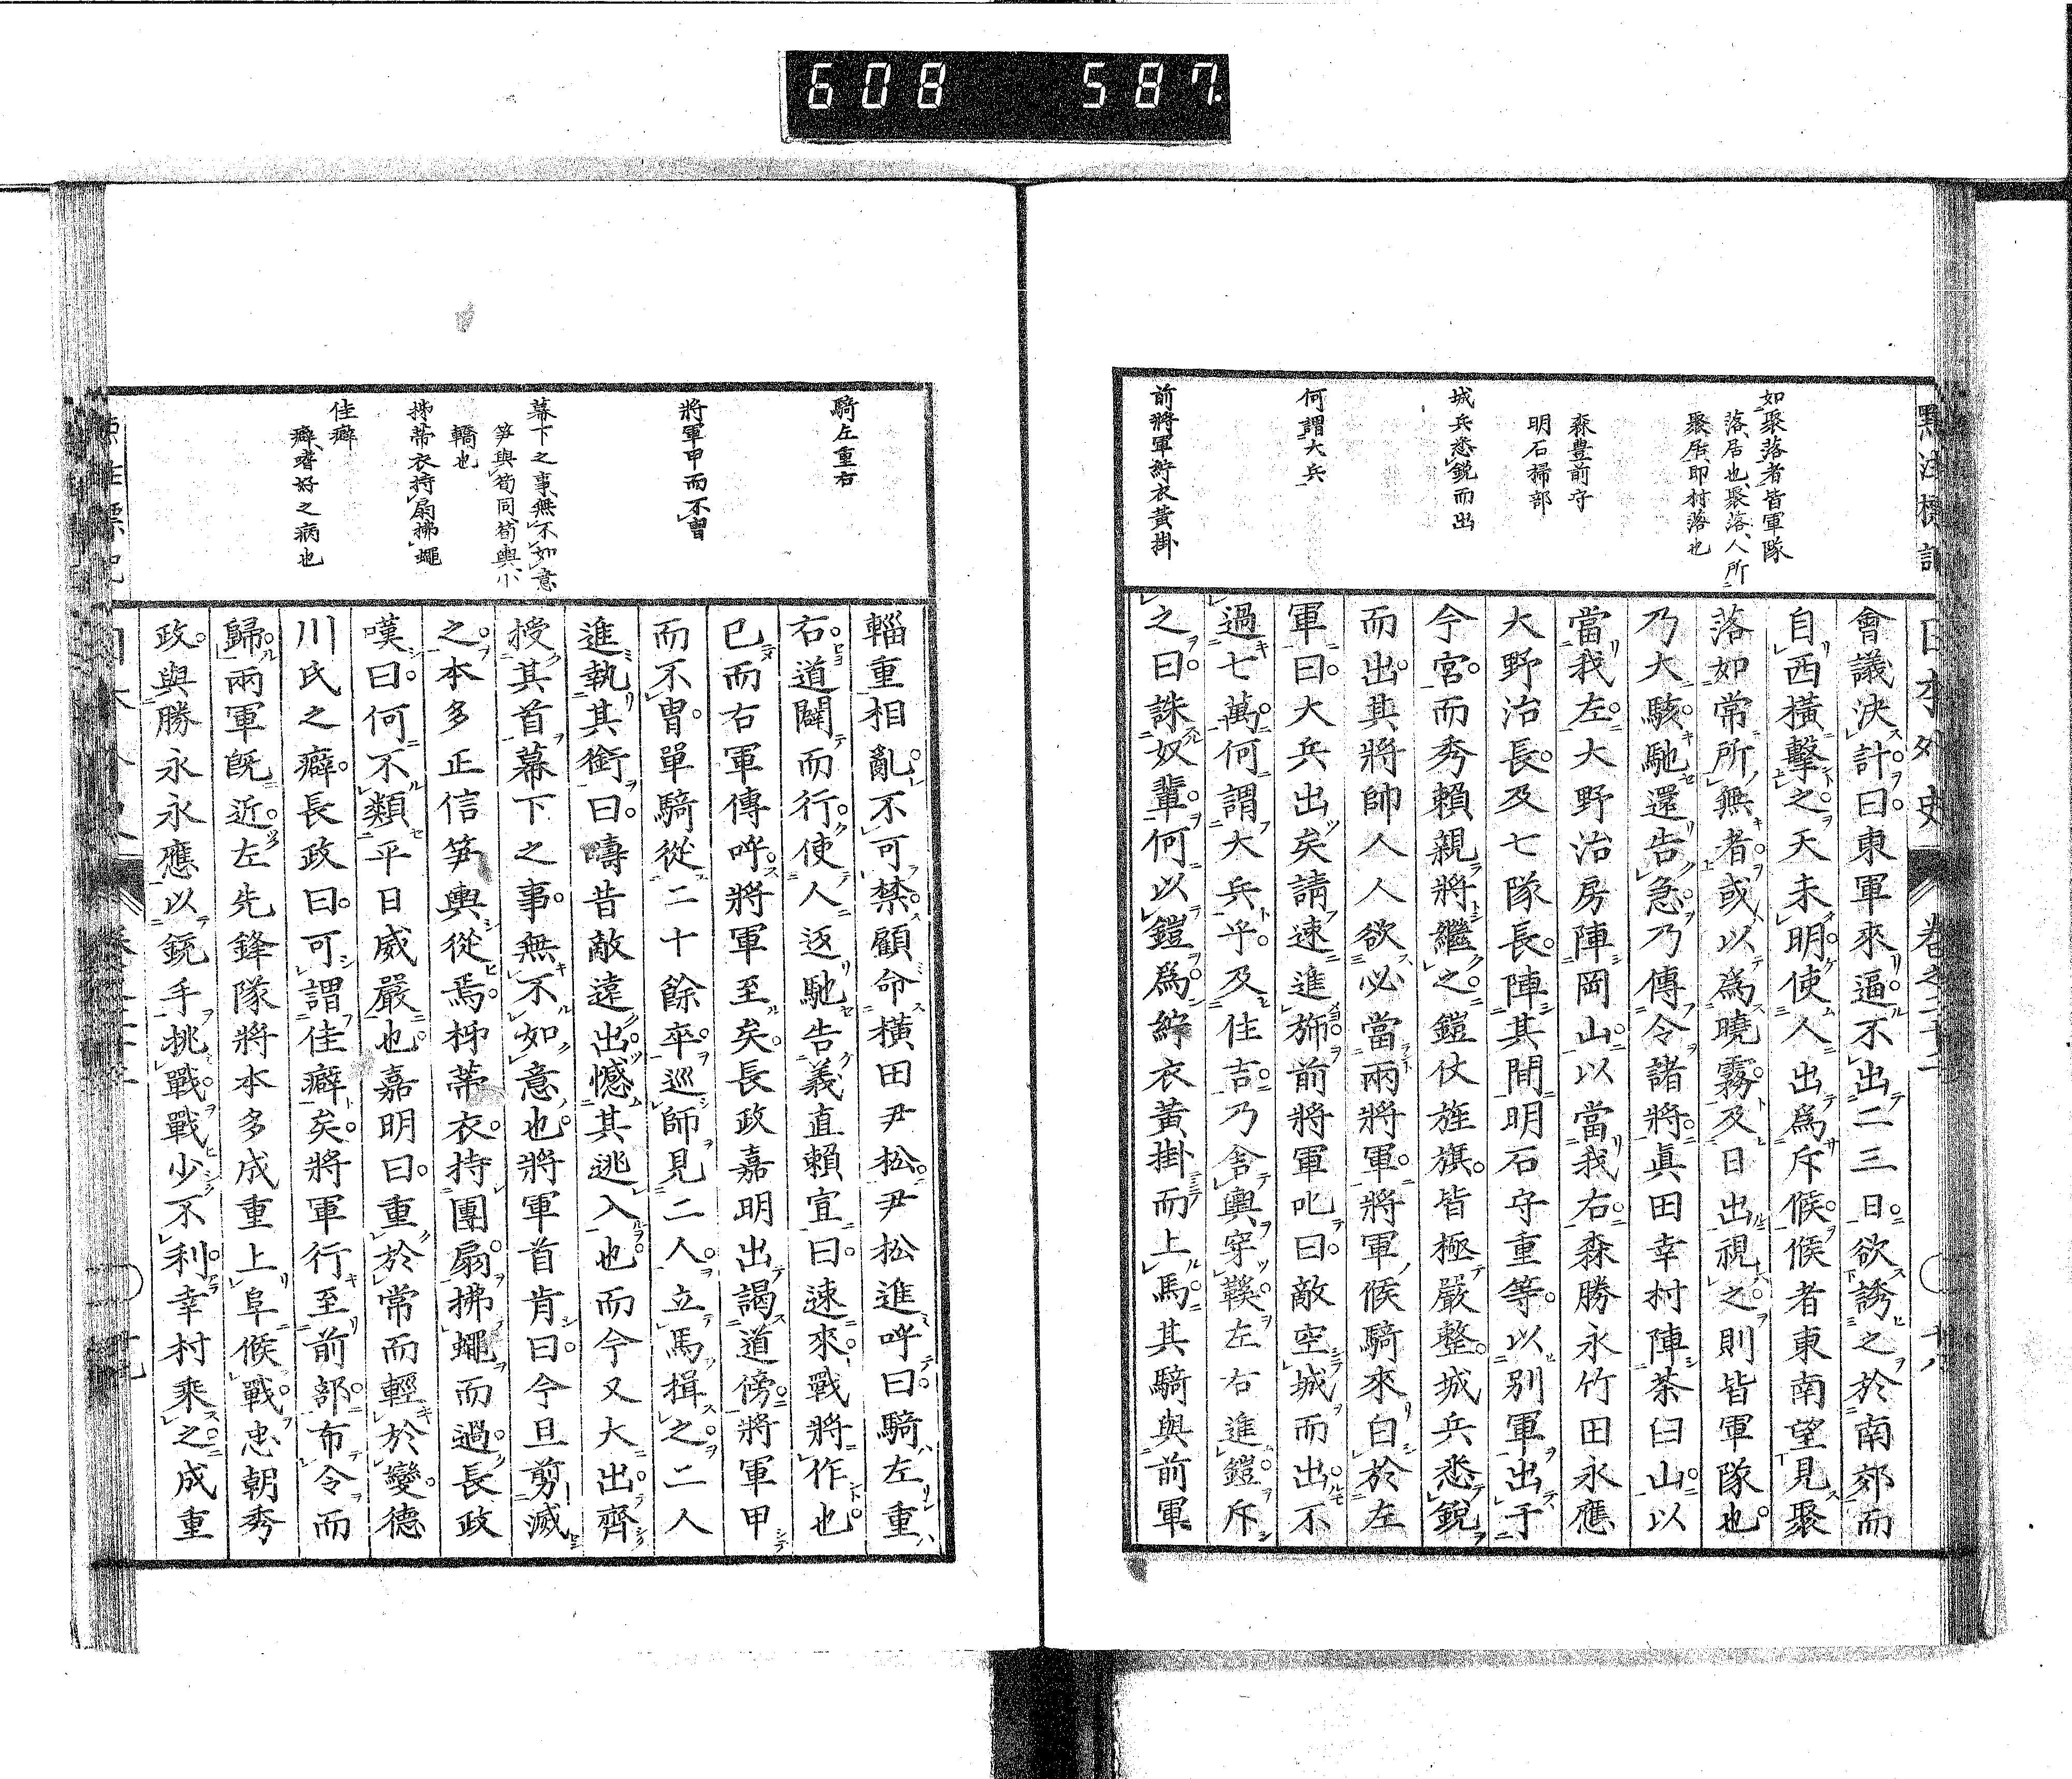 608 587.
日本外史 卷之二十二
如聚落者皆軍隊
落、居也、聚落、人所
聚居、即村落也
森豊前守
明石掃部
城兵悉銳而出
何謂大兵
前將軍紵衣黃掛
會議決計曰東軍來逼不出二三日欲誘之於南郊而
自西橫擊之天未明使人出爲斥候候者東南望見聚
落如常所無者或以爲曉霧及日出視之則皆軍隊也
乃大駭馳還告急乃傳令諸將眞田幸村陣茶臼山以
當我左大野治房陣岡山以當我右森勝永竹田永應
大野治長及七隊長陣其間明石守重等以别軍出于
今宮而秀賴親將繼之鎧仗旌旗皆極嚴整城兵悉銳
而出其將帥人人欲必當兩將軍將軍候騎來白於左
軍曰大兵出矣請速進斾前將軍叱曰敵空城而出不
過七萬何謂大兵乎及住吉乃舍輿穿鞵左右進鎧斥
之曰誅奴輩何以鎧爲紵衣黃掛而上馬其騎與前軍
騎左重右
將軍甲而不冑
幕下之事、無不如意
笋輿、筍同、筍輿、小
轎也
梯蔕衣持扇拂蠅
佳癖
癖、嗜好之病也
輜重相亂不可禁顧命橫田尹松尹松進呼曰騎左重
右道闢而行使人返馳告義直賴宣曰速來戰將作也
已而右軍傳呼將軍至矣長政嘉明出謁道傍將軍甲
而不冑單騎從二十餘卒巡師見二人立馬揖之二人
進執其銜曰嚋昔敵遠出憾其逃入也而今又大出齊
授其首幕下之事無不如意也將軍首肯曰今旦剪滅
之本多正信笋輿從焉梯蔕衣持團扇拂蠅而過長政
嘆曰何不類平日威嚴也嘉明曰重於常而輕於變德
川氏之癖長政曰可謂佳癖矣將軍行至前部布令而
歸兩軍既近左先鋒隊將本多成重上阜候戰忠朝秀
政與勝永永應以銃手挑戰戰少不利幸村乘之成重